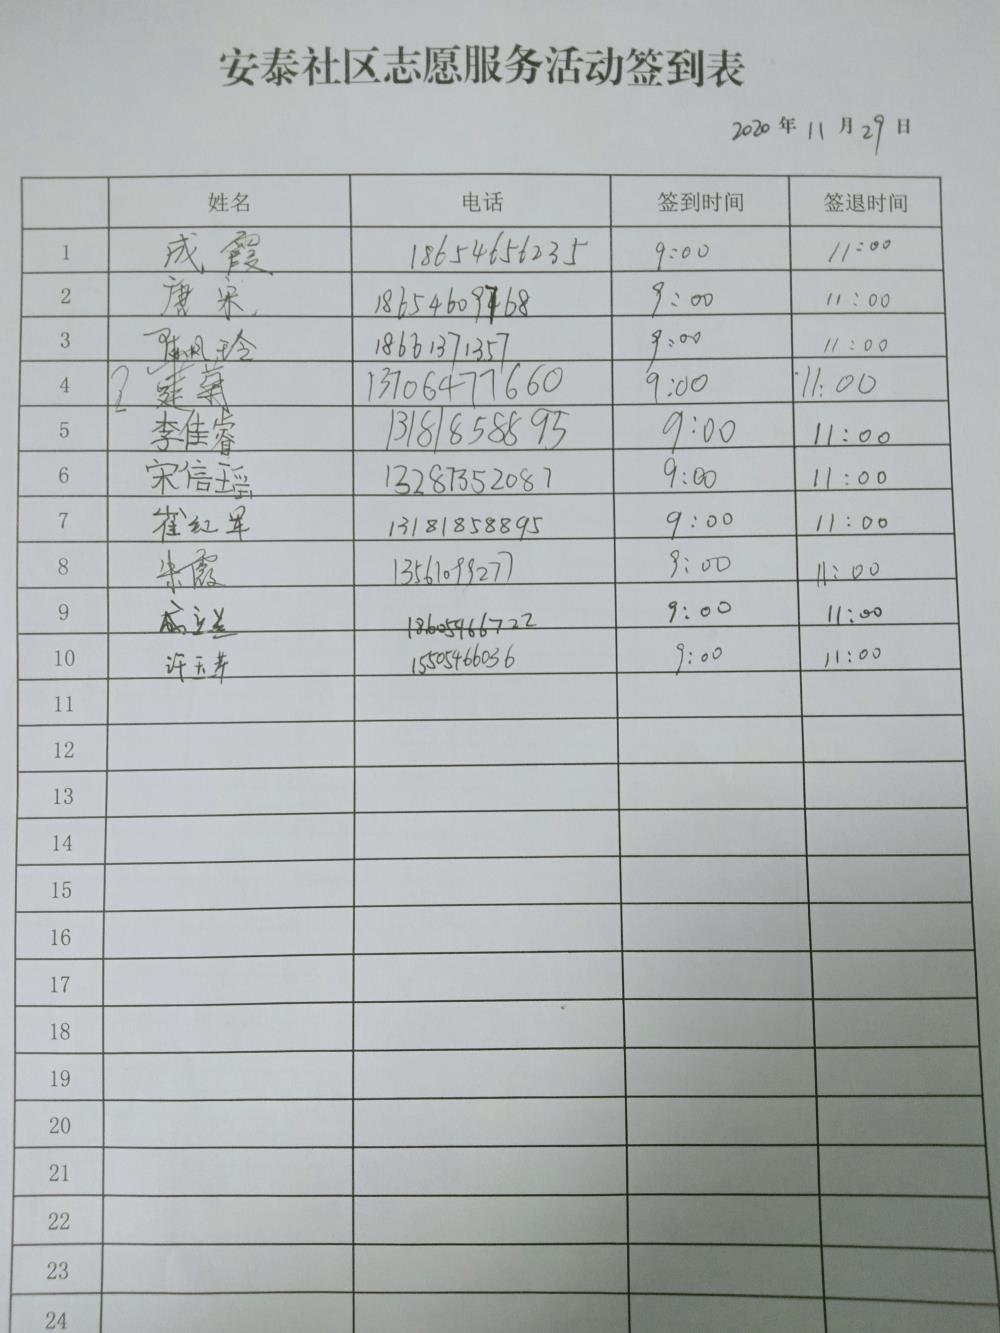 安泰社区志愿服务活动签到表
2020年11月29日
姓名 电话 签到时间 签退时间
1 成霞 18654656235 9:00 11:00
2 唐荣 18654609768 9:00 11:00
3 18661371357 9:00 11:00
4 13706477660 9:00 11:00
5 李佳睿 13181858895 9:00 11:00
6 宋信瑶 13287352087 9:00 11:00
7 崔红军 13181858895 9:00 11:00
8 朱霞 13561099277 9:00 11:00
9 18605466722 9:00 11:00
10 许玉萍 15505466036 9:00 11:00
11
12
13
14
15
16
17
18
19
20
21
22
23
24